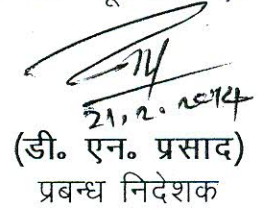 21.2.2014
(डी० एन० प्रसाद)
प्रबन्ध निदेशक